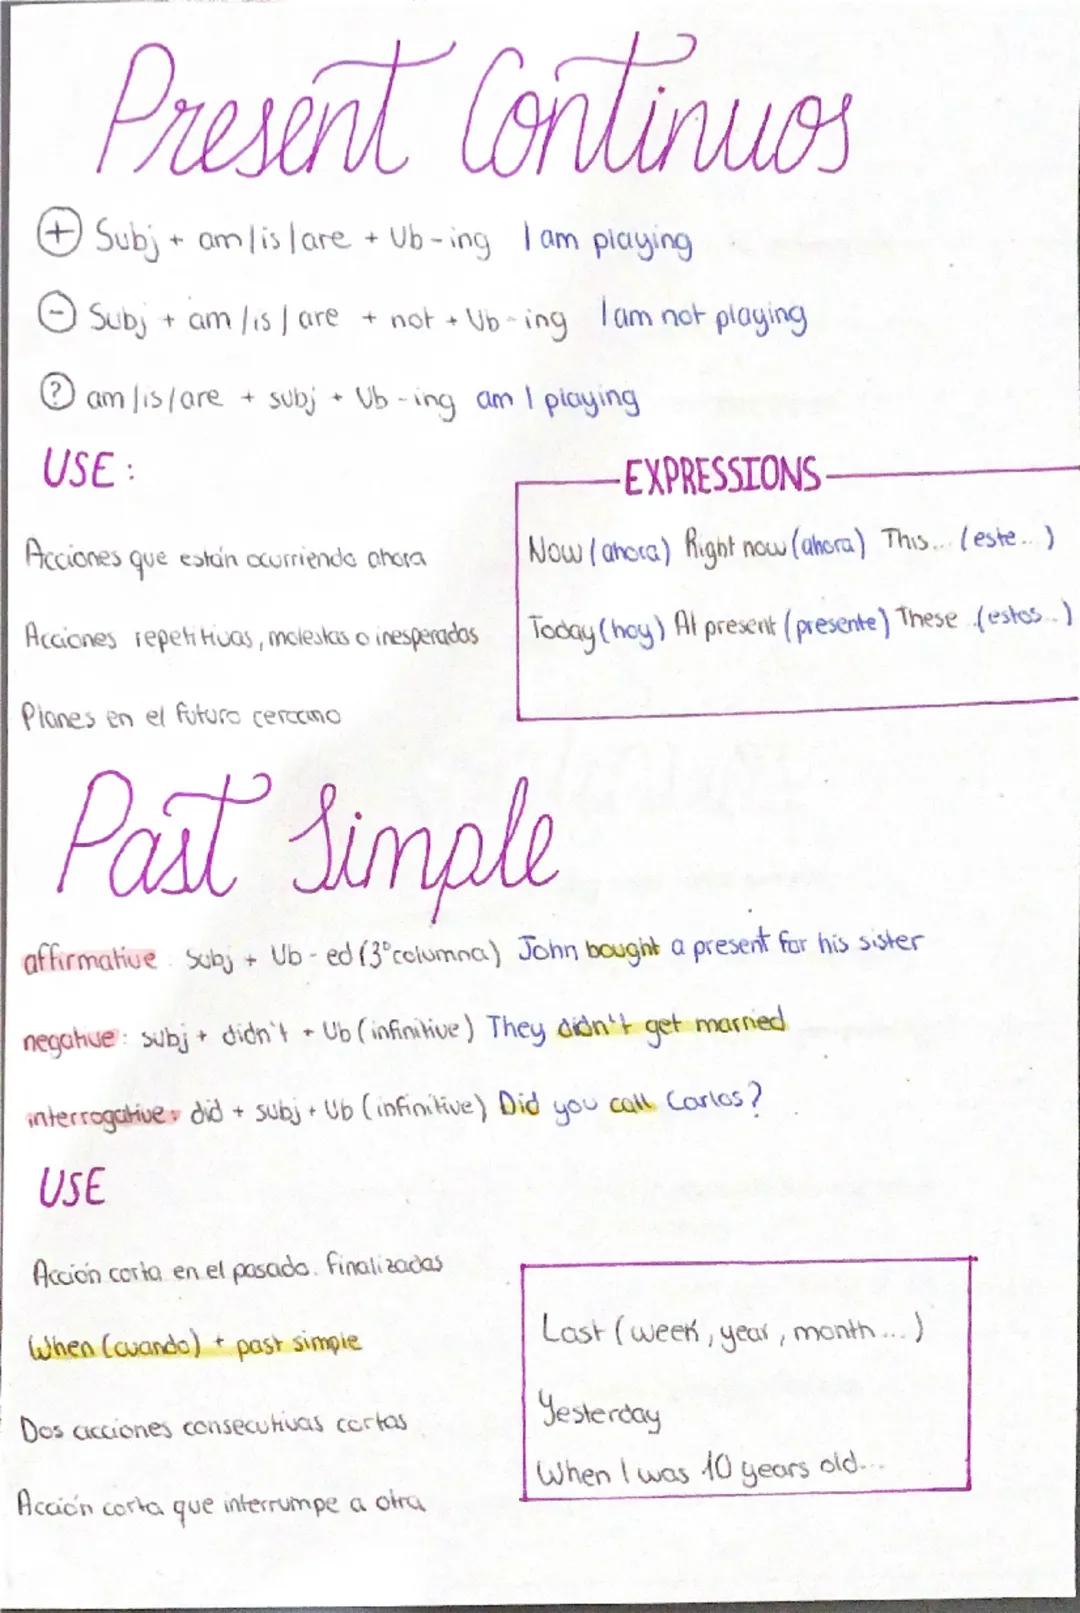 Present Continuos
+ Subj + am/is/are + Vb-ing I am playing
- Subj + am/is/are + not + Vb-ing I am not playing
? am/is/are + subj + Vb-ing am I playing
USE:
EXPRESSIONS
Acciones que están ocurriendo ahora
Now (ahora) Right now (ahora) This... (este...)
Acciones repetitivas, molestas o inesperadas
Today (hoy) At present (presente) These ..(estos..)
Planes en el futuro cercano
Past Simple
affirmative: Subj + Vb-ed (3º columna) John bought a present for his sister
negative: subj + didn't + Vb (infinitive) They didn't get married
interrogative: did + subj + Vb (infinitive) Did you call Carlos?
USE
Acción corta en el pasado. Finalizadas
When (cuando) + past simple
Dos acciones consecutivas cortas
Acción corta que interrumpe a otra
Last (week, year, month...)
Yesterday
When I was 10 years old...